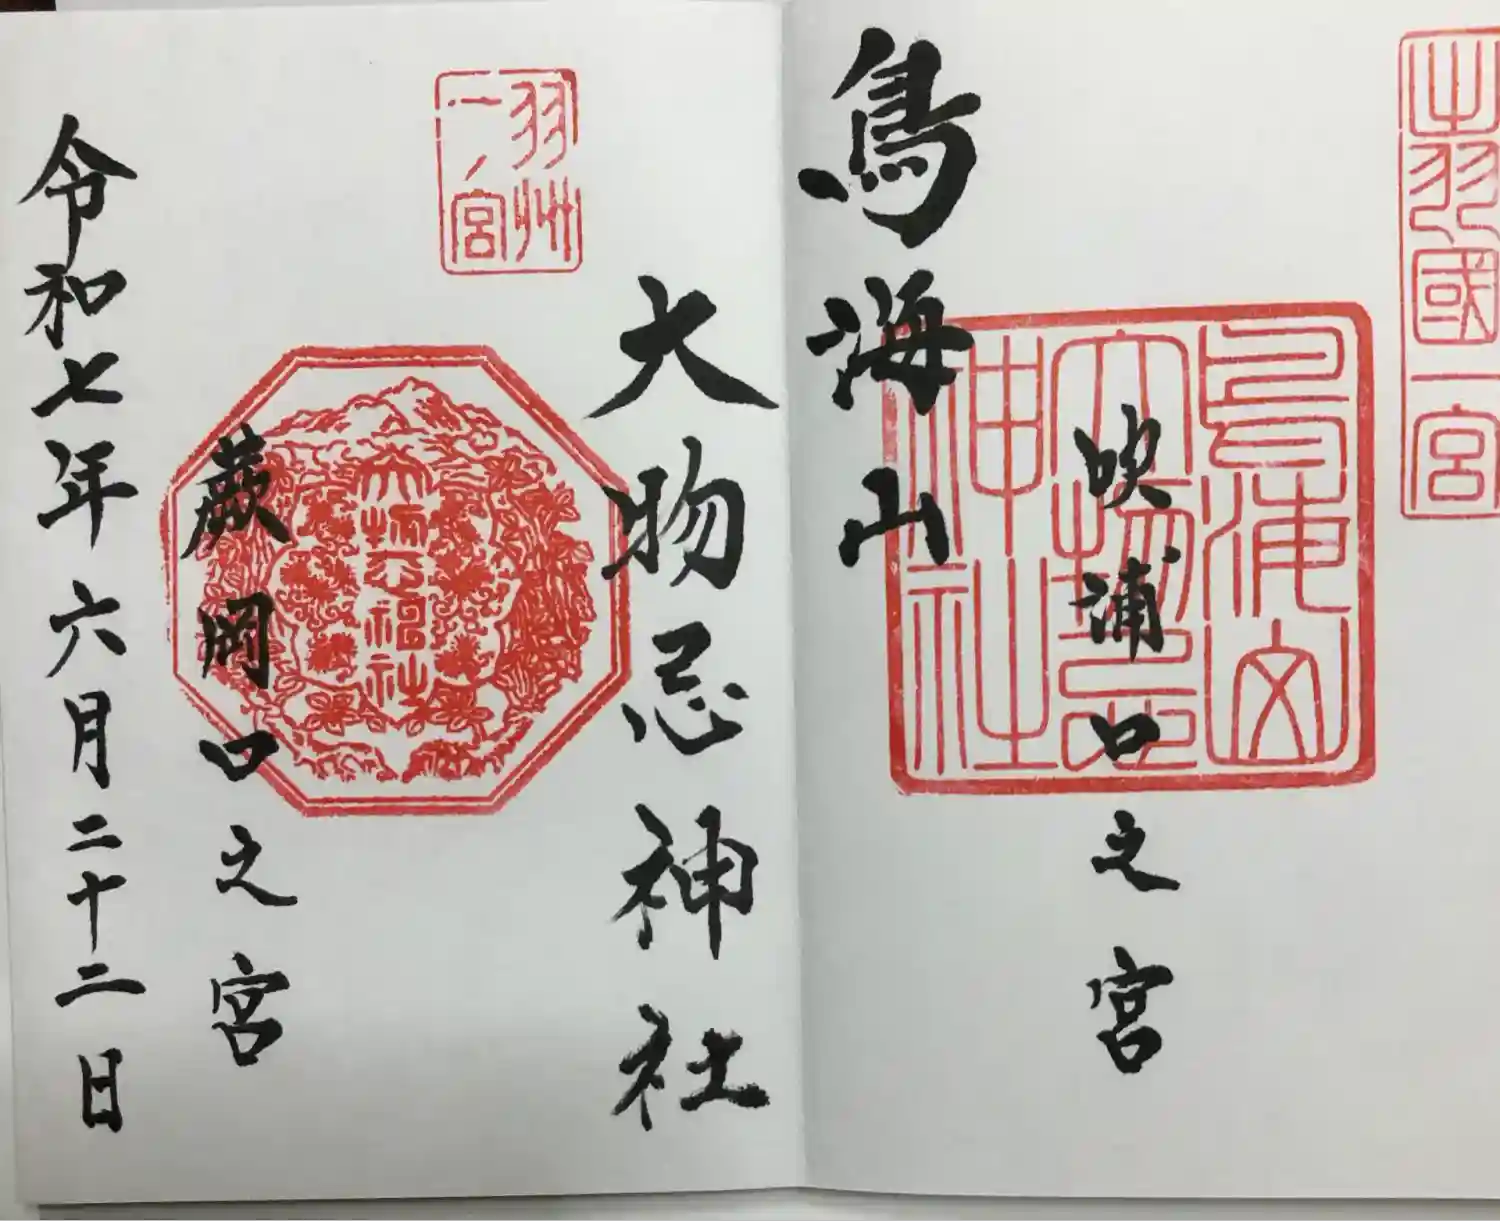 出羽國一宮
吹浦口之宮
鳥海山
鳥海山
大物忌
神社
大物忌神社
羽州
一ノ宮
大物忌神社
蕨岡口之宮
令和七年六月二十二日